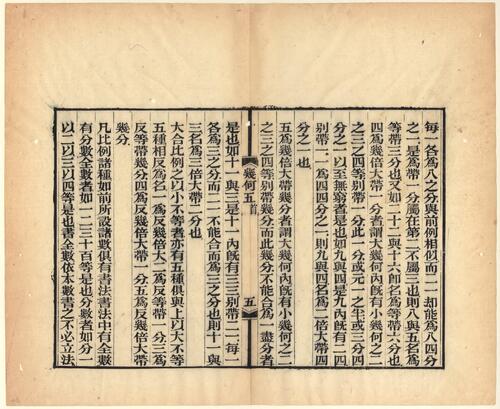 每一各為八之分與前例相似而二一却能為八四分
之一是為帶一分屬在第二不屬三也則八與五名為
等帶三分也又如二十二與十六即名為等帶六分也
四為幾倍大帶一分者謂大幾何內既有小幾何之二
之三之四等別帶一分此一分或元一之半或三分四
分之一以至無窮者是也如九與四是九內既有二四
別帶一一為四四分之一則九與四名為二倍大帶四
分之一也
五為幾倍大帶幾分者謂大幾何內既有小幾何之二
之三之四等別帶幾分而此幾分不能合為一盡分者
幾何五 首 五
是也如十一與三是十一內既有三三別帶二一每一
各為三之分而二一不能合而為三之分也則十一與
三名為三倍大帶二分也
大合比例之以小不等者亦有五種俱與上以大不等
五種相反為名一為反幾倍大二為反等帶一分三為
反等帶幾分四為反幾倍大帶一分五為反幾倍大帶
幾分
凡比例諸種如前所設諸數俱有書法書法中有全數
有分數全數者如一二三十百等是也分數者如分一
以二以三以四等是也書全數依本數書之不必立法